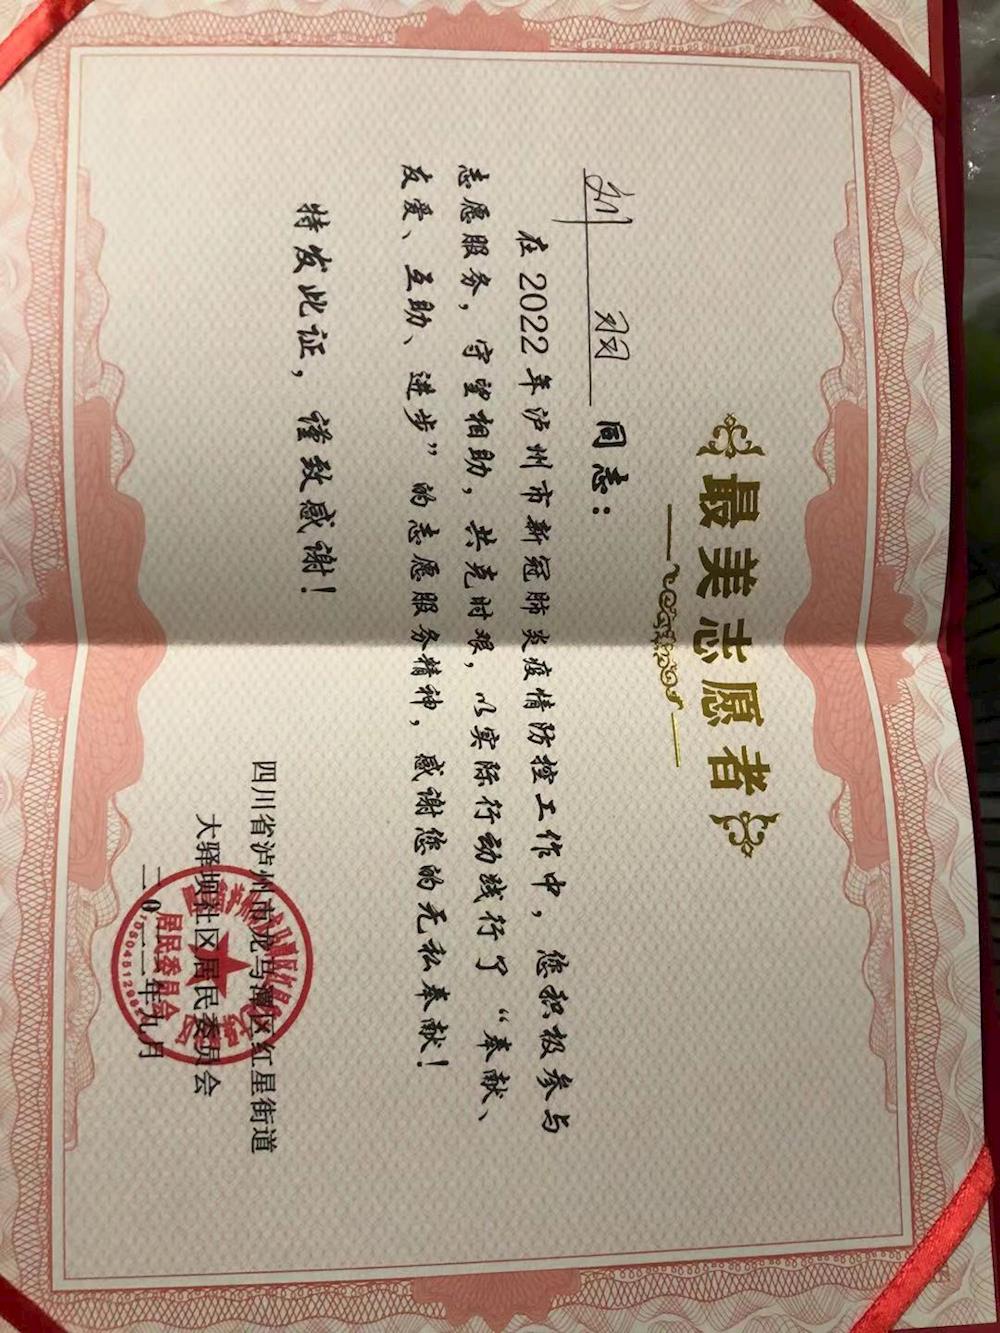 最美志愿者
刘 羽 同志：
在2022年泸州市新冠肺炎疫情防控工作中，您积极参与
志愿服务，守望相助，共克时艰，以实际行动践行了“奉献、
友爱、互助、进步”的志愿服务精神，感谢您的无私奉献！
特发此证，谨致感谢！
四川省泸州市龙马潭区红星街道
大驿坝社区居民委员会
二0二二年九月
居民委员会